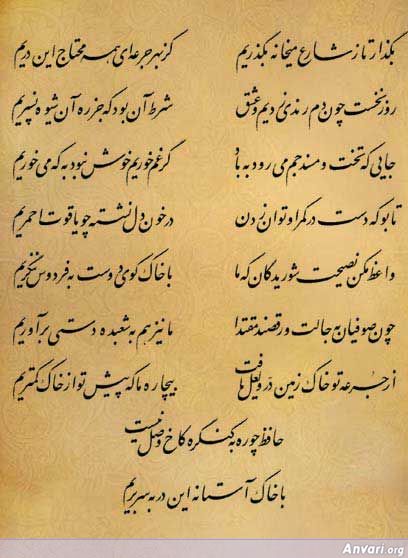 بگذار تا ز شارع میخانه بگذریم کز بهر جرعه‌ای همه محتاج این دریم
روز نخست چون دم رندی زدیم و عشق شرط آن بود که جز ره آن شیوه نسپریم
جایی که تخت و مسند جم می رود به باد گر غم خوریم خوش نبود به که می خوریم
تا بو که دست در کمر او توان زدن در خون دل نشسته چو یاقوت احمریم
واعظ مکن نصیحت شوریدگان که ما با خاک کوی دوست به فردوس ننگریم
چون صوفیان به حالت و رقصند مقتدا ما نیز هم به شعبده دستی برآوریم
از جرعه تو خاک زمین در و لعل یافت بیچاره ما که پیش تو از خاک کمتریم
حافظ چو ره به کنگره کاخ وصل نیست
با خاک آستانه این در به سر بریم
Anvari.org